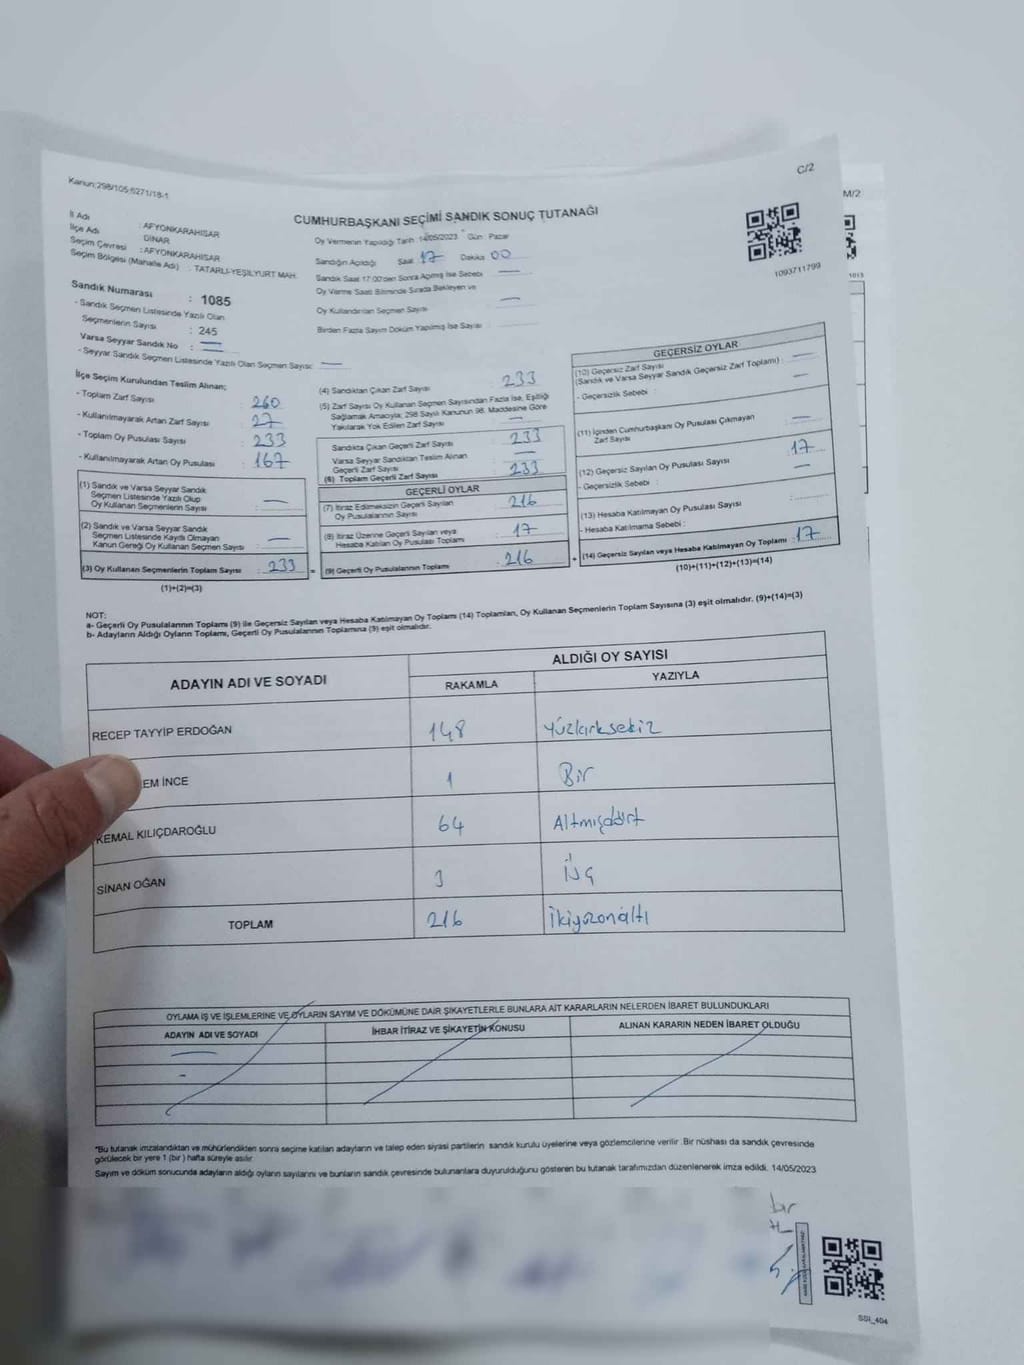 C/2
M/2
Kanun:298/105;6271/18-1
CUMHURBAŞKANI SEÇİMİ SANDIK SONUÇ TUTANAĞI
İl Adı : AFYONKARAHISAR
İlçe Adı DİNAR
Seçim Çevresi : AFYONKARAHISAR
Seçim Bölgesi (Mahalle Adı) : TATARLI-YEŞİLYURT MAH.
Sandık Numarası : 1085
- Sandık Seçmen Listesinde Yazılı Olan
Seçmenlerin Sayısı : 245
Varsa Seyyar Sandık No : —
- Seyyar Sandık Seçmen Listesinde Yazılı Olan Seçmen Sayısı: —
Oy Vermenin Yapıldığı Tarih :14/05/2023 Gün : Pazar
Sandığın Açıldığı Saat 17 Dakika 00
Sandık Saat 17:00'den Sonra Açılmış İse Sebebi —
Oy Verme Saati Bitiminde Sırada Bekleyen ve
Oy Kullandırılan Seçmen Sayısı —
Birden Fazla Sayım Döküm Yapılmış İse Sayısı :
1093711799
1013
İlçe Seçim Kurulundan Teslim Alınan;
- Toplam Zarf Sayısı : 260
- Kullanılmayarak Artan Zarf Sayısı : 27
- Toplam Oy Pusulası Sayısı : 233
- Kullanılmayarak Artan Oy Pusulası : 167
(1) Sandık ve Varsa Seyyar Sandık
Seçmen Listesinde Yazılı Olup
Oy Kullanan Seçmenlerin Sayısı : —
(2) Sandık ve Varsa Seyyar Sandık
Seçmen Listesinde Kayıtlı Olmayan
Kanun Gereği Oy Kullanan Seçmen Sayısı : —
(3) Oy Kullanan Seçmenlerin Toplam Sayısı : 233 =
(1)+(2)=(3)
(4) Sandıktan Çıkan Zarf Sayısı : 233
(5) Zarf Sayısı Oy Kullanan Seçmen Sayısından Fazla İse, Eşitliği
Sağlamak Amacıyla; 298 Sayılı Kanunun 98. Maddesine Göre
Yakılarak Yok Edilen Zarf Sayısı : —
Sandıkta Çıkan Geçerli Zarf Sayısı : 233
Varsa Seyyar Sandıktan Teslim Alınan
Geçerli Zarf Sayısı : —
(6) Toplam Geçerli Zarf Sayısı : 233
GEÇERLİ OYLAR
(7) İtiraz Edilmeksizin Geçerli Sayılan
Oy Pusulalarının Sayısı : 216
(8) İtiraz Üzerine Geçerli Sayılan veya
Hesaba Katılan Oy Pusulası Toplamı : 17
(9) Geçerli Oy Pusulalarının Toplamı : 216 +
GEÇERSİZ OYLAR
(10) Geçersiz Zarf Sayısı
(Sandık ve Varsa Seyyar Sandık Geçersiz Zarf Toplamı) : —
- Geçersizlik Sebebi : —
(11) İçinden Cumhurbaşkanı Oy Pusulası Çıkmayan
Zarf Sayısı : —
(12) Geçersiz Sayılan Oy Pusulası Sayısı : 17
- Geçersizlik Sebebi : —
(13) Hesaba Katılmayan Oy Pusulası Sayısı :
- Hesaba Katılmama Sebebi :
(14) Geçersiz Sayılan veya Hesaba Katılmayan Oy Toplamı : 17
(10)+(11)+(12)+(13)=(14)
NOT:
a- Geçerli Oy Pusulalarının Toplamı (9) ile Geçersiz Sayılan veya Hesaba Katılmayan Oy Toplamı (14) Toplamları, Oy Kullanan Seçmenlerin Toplam Sayısına (3) eşit olmalıdır. (9)+(14)=(3)
b- Adayların Aldığı Oyların Toplamı, Geçerli Oy Pusulalarının Toplamına (9) eşit olmalıdır.
ADAYIN ADI VE SOYADI
ALDIĞI OY SAYISI
RAKAMLA YAZIYLA
RECEP TAYYİP ERDOĞAN 148 Yüzkırksekiz
EM İNCE 1 Bir
KEMAL KILIÇDAROĞLU 64 Altmışdört
SİNAN OĞAN 3 üç
TOPLAM 216 ikiyüzonaltı
OYLAMA İŞ VE İŞLEMLERİNE VE OYLARIN SAYIM VE DÖKÜMÜNE DAİR ŞİKAYETLERLE BUNLARA AİT KARARLARIN NELERDEN İBARET BULUNDUKLARI
ADAYIN ADI VE SOYADI İHBAR İTİRAZ VE ŞİKAYETİN KONUSU ALINAN KARARIN NEDEN İBARET OLDUĞU
*Bu tutanak imzalandıktan ve mühürlendikten sonra seçime katılan adayların ve talep eden siyasi partilerin sandık kurulu üyelerine veya gözlemcilerine verilir .Bir nüshası da sandık çevresinde
görülecek bir yere 1 (bir ) hafta süreyle asılır.
Sayım ve döküm sonucunda adayların aldığı oyların sayılarını ve bunların sandık çevresinde bulunanlara duyurulduğunu gösteren bu tutanak tarafımızdan düzenlenerek imza edildi. 14/05/2023
SSI_404